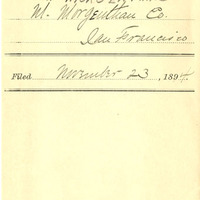 M. Morgenthau Co.
San Francisco
Filed November 23, 1894.